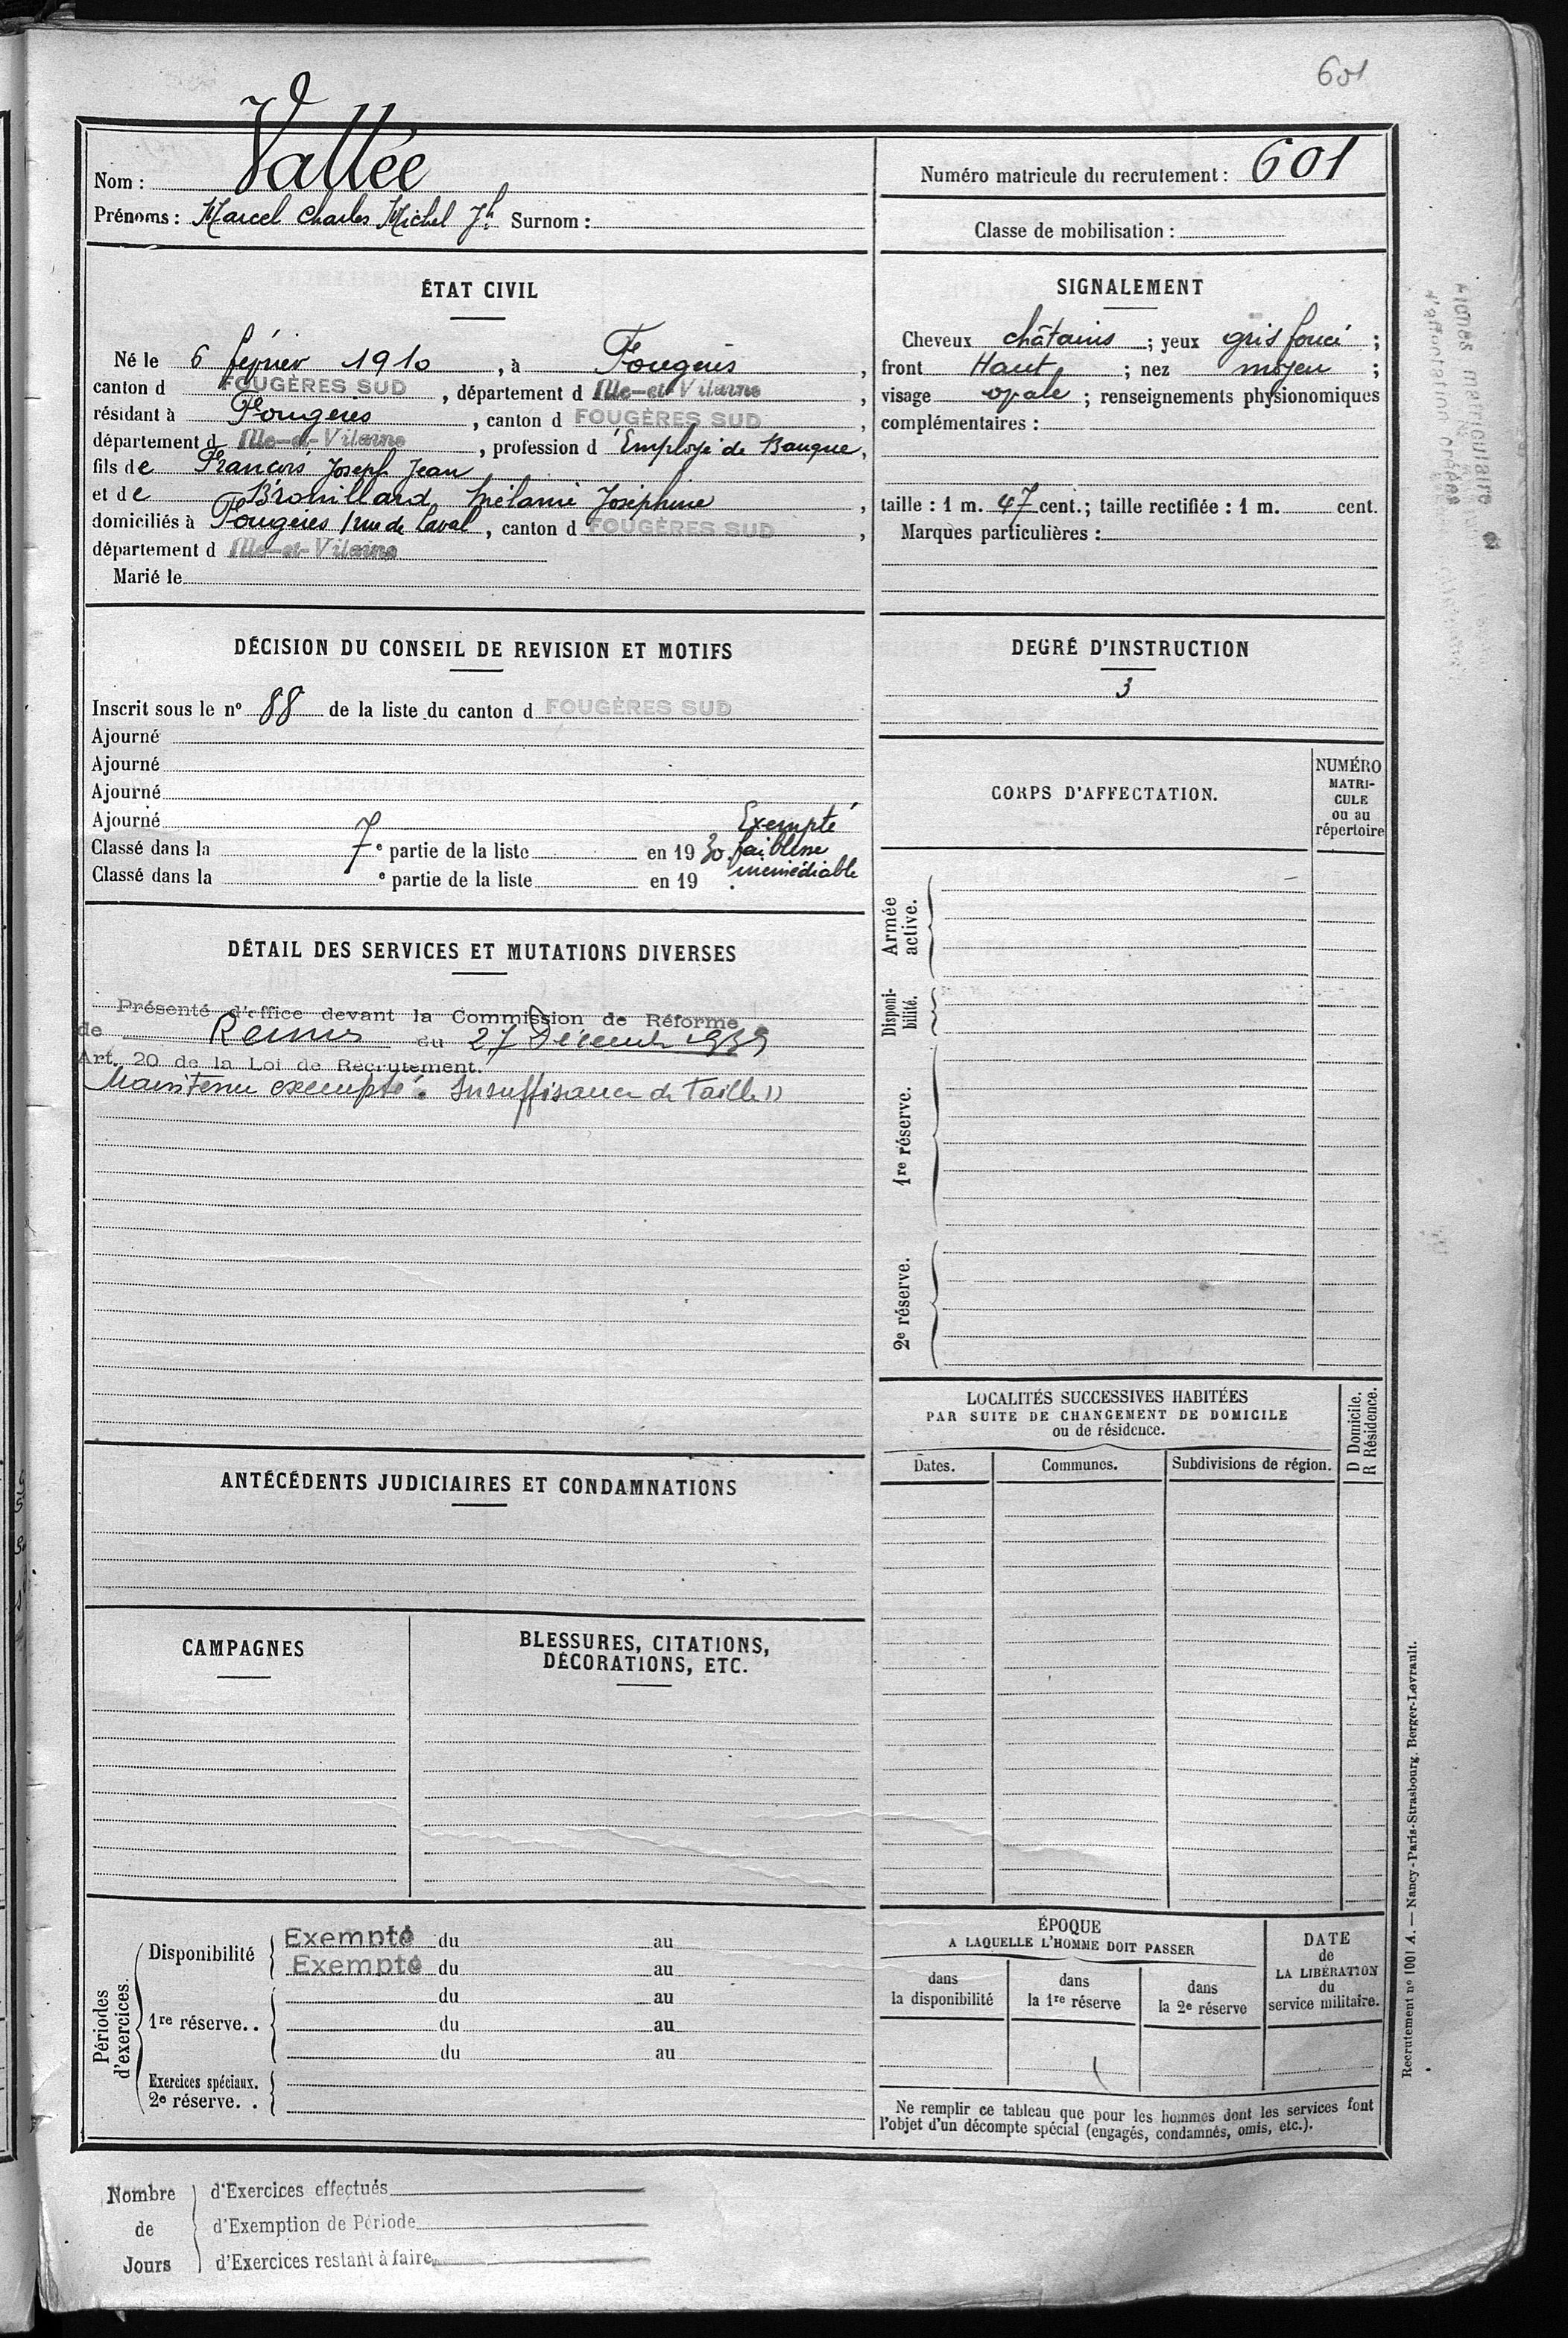 601
Nom : Vallée
Prénoms : Marcel Charles Michel Jh Surnom :
Numéro matricule du recrutement : 601
Classe de mobilisation :
ÉTAT CIVIL
Né le 6 février 1910, à Fougères,
canton d FOUGÈRES SUD, département d Ille-et-Vilaine,
résidant à Fougères, canton d FOUGÈRES SUD,
département d Ille-et-Vilaine, profession d'Employé de Banque,
fils de François Joseph Jean
et de Brouillard Mélanie Joséphine,
domiciliés à Fougères 1 rue de Laval, canton d FOUGÈRES SUD,
département d Ille-et-Vilaine
Marié le
SIGNALEMENT
Cheveux châtains ; yeux gris foncé ;
front Haut ; nez moyen ;
visage ovale ; renseignements physionomiques
complémentaires :
taille : 1 m. 47 cent. ; taille rectifiée : 1 m. cent.
Marques particulières :
DÉCISION DU CONSEIL DE REVISION ET MOTIFS
Inscrit sous le nº 88 de la liste du canton d FOUGÈRES SUD
Ajourné
Ajourné
Ajourné
Ajourné Exempté
Classé dans la 7e partie de la liste en 1930. faiblesse
Classé dans la e partie de la liste en 19 . irrémédiable
DEGRÉ D'INSTRUCTION
3
DÉTAIL DES SERVICES ET MUTATIONS DIVERSES
Présenté d'office devant la Commission de Réforme
de Rennes du 27 Décembre 1939
Art. 20 de la Loi de Recrutement.
Maintenu exempté. Insuffisance de taille"
CORPS D'AFFECTATION.
NUMÉRO
MATRI-
CULE
ou au
répertoire
Armée
active.
Disponi-
bilité.
1re réserve.
2e réserve.
LOCALITÉS SUCCESSIVES HABITÉES
PAR SUITE DE CHANGEMENT DE DOMICILE
ou de résidence.
D Domicile.
R Résidence.
Dates.
Communes.
Subdivisions de région.
ANTÉCÉDENTS JUDICIAIRES ET CONDAMNATIONS
CAMPAGNES
BLESSURES, CITATIONS,
DÉCORATIONS, ETC.
Périodes
d'exercices.
Disponibilité
Exempté du au
Exempté du au
1re réserve..
du au
du au
du au
Exercices spéciaux.
2e réserve. .
ÉPOQUE
A LAQUELLE L'HOMME DOIT PASSER
dans
la disponibilité
dans
la 1re réserve
dans
la 2e réserve
DATE
de
LA LIBÉRATION
du
service militaire.
Ne remplir ce tableau que pour les hommes dont les services font
l'objet d'un décompte spécial (engagés, condamnés, omis, etc.).
Nombre
de
Jours
d'Exercices effectués
d'Exemption de Période
d'Exercices restant à faire
Recrutement nº 1001 A. — Nancy-Paris-Strasbourg, Berger-Levrault.